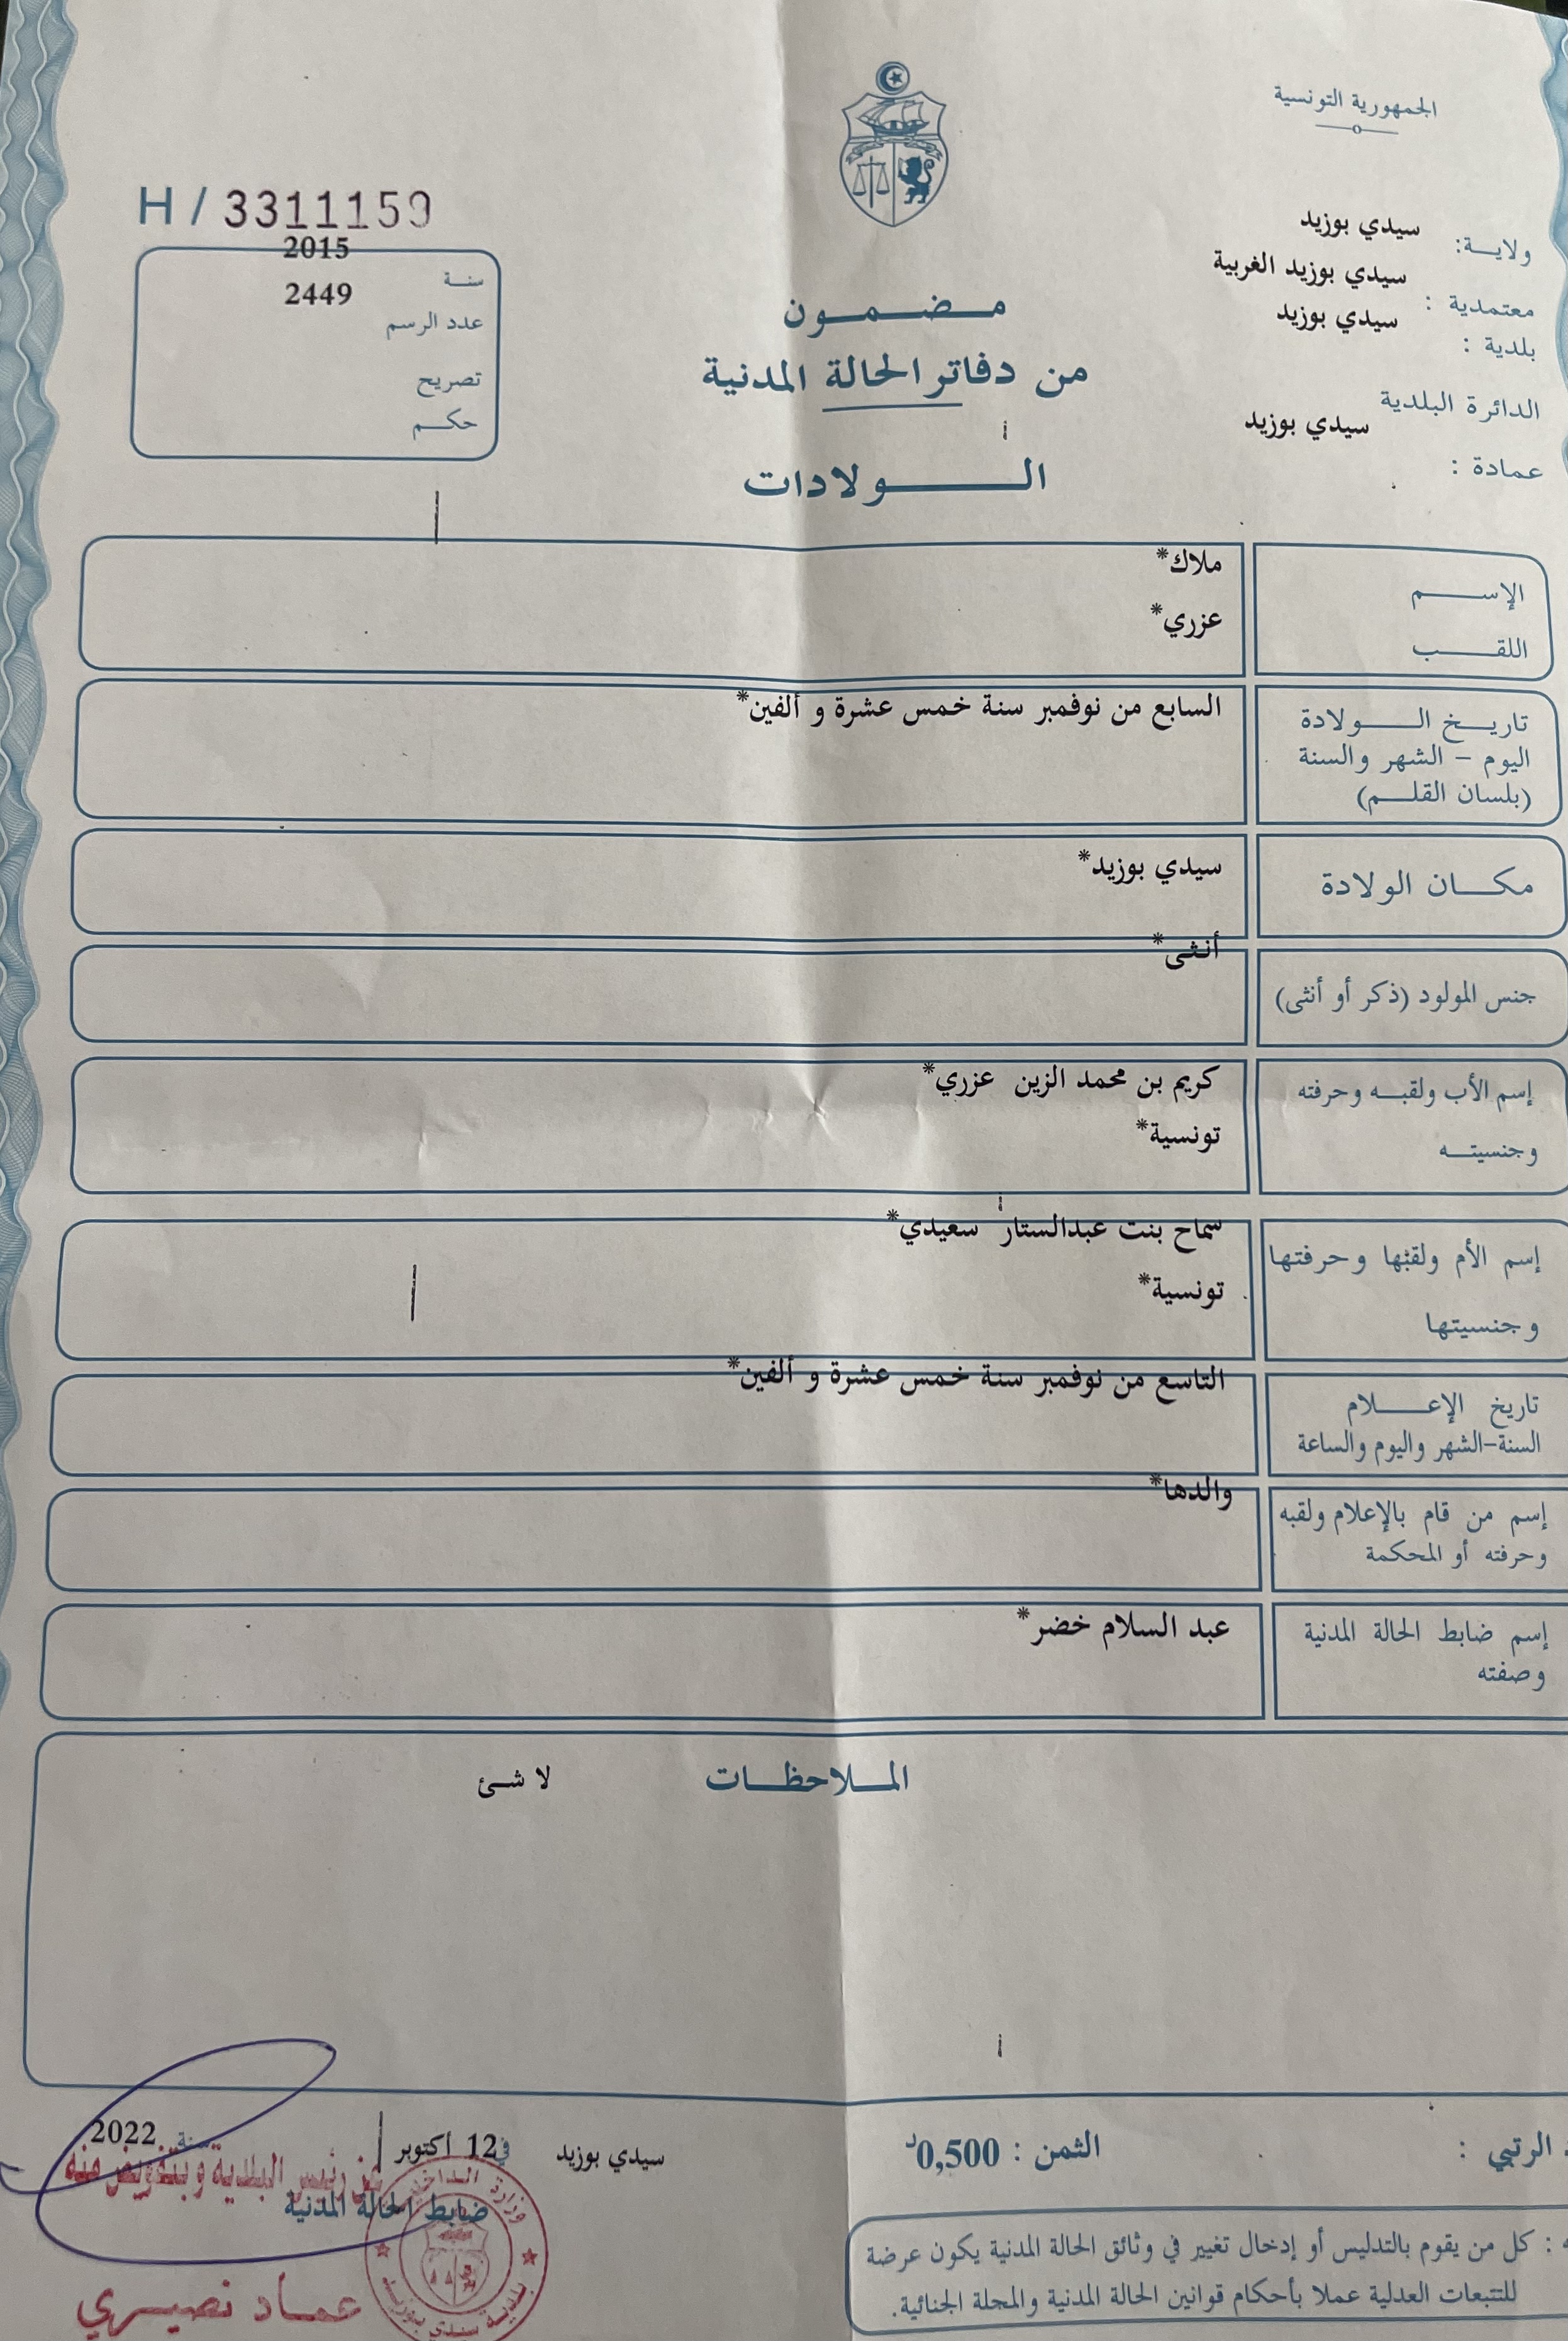 الجمهورية التونسية
ولاية: سيدي بوزيد
معتمدية : سيدي بوزيد الغربية
بلدية : سيدي بوزيد
الدائرة البلدية سيدي بوزيد
عمادة :
H / 3311159
سنة 2015
عدد الرسم 2449
تصريح
حكم
مضمون
من دفاتر الحالة المدنية
الولادات
الإسم ملاك*
اللقب عزري*
تاريخ الولادة السابع من نوفمبر سنة خمس عشرة و ألفين*
اليوم - الشهر والسنة
(بلسان القلم)
مكان الولادة سيدي بوزيد*
جنس المولود (ذكر أو أنثى) أنثى*
إسم الأب ولقبه وحرفته كريم بن محمد الزين عزري*
وجنسيته تونسية*
إسم الأم ولقبها وحرفتها سماح بنت عبدالستار سعيدي*
وجنسيتها تونسية*
تاريخ الإعلام التاسع من نوفمبر سنة خمس عشرة و ألفين*
السنة-الشهر واليوم والساعة
إسم من قام بالإعلام ولقبه والدها*
وحرفته أو المحكمة
إسم ضابط الحالة المدنية عبد السلام خضر*
وصفته
الملاحظات لا شئ
الرتبي : الثمن : 0,500د
سيدي بوزيد في 12 أكتوبر سنة 2022
عن رئيس البلدية وبتفويض منه
ضابط الحالة المدنية
وزارة الداخلية
بلدية سيدي بوزيد
عماد نصيري
: كل من يقوم بالتدليس أو إدخال تغيير في وثائق الحالة المدنية يكون عرضة
للتتبعات العدلية عملا بأحكام قوانين الحالة المدنية والمجلة الجنائية.